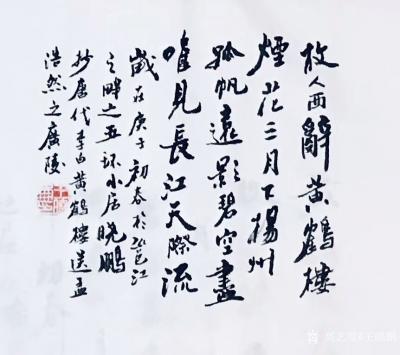 故人西辭黄鶴樓
煙花三月下揚州
孤帆遠影碧空盡
唯見長江天際流
歲在庚子初春於邕江
之畔之五环小居晓鹏
抄唐代李白黄鶴樓送孟
浩然之廣陵